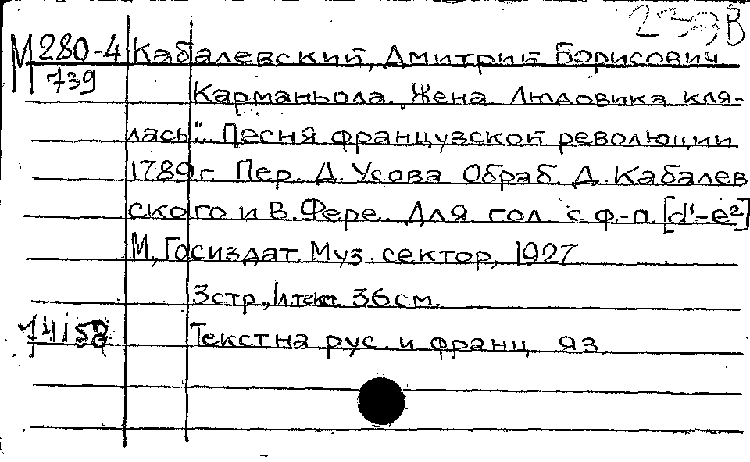 239В
М 280-4 Кабалевский, Дмитрий Борисович
739 Карманьола. Жена Людовика кля-
лась". Песня французской революции
1789 г. Пер. Д. Усова Обраб. Д. Кабалев
ского и В. Фере. Для гол. с ф.-п. [d¹-e²]
М, Госиздат. Муз. сектор, 1927
3 стр., 36 см.
Текст на рус. и франц. яз.